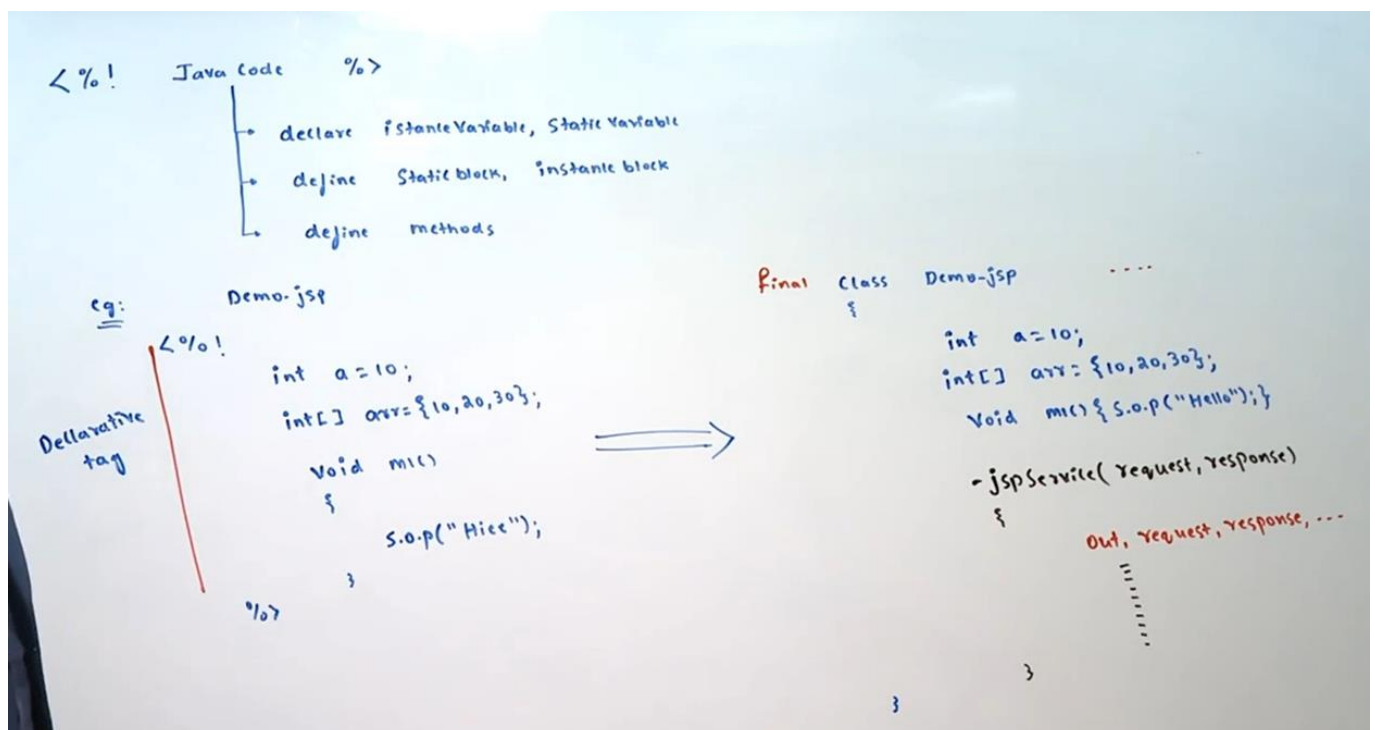 <%! Java Code %>
declare istance Variable, Static Variable
define Static block, instance block
define methods
eg: Demo.jsp
Declarative
tag
<%!
int a = 10;
int[] arr = {10,20,30};
void m1()
{
S.o.p("Hiee");
}
%>
final Class Demo-jsp ....
{
int a = 10;
int[] arr = {10,20,30};
Void m1() { S.o.p("Hello");}
-jspService( request, response)
{
Out, request, response, ...
}
}